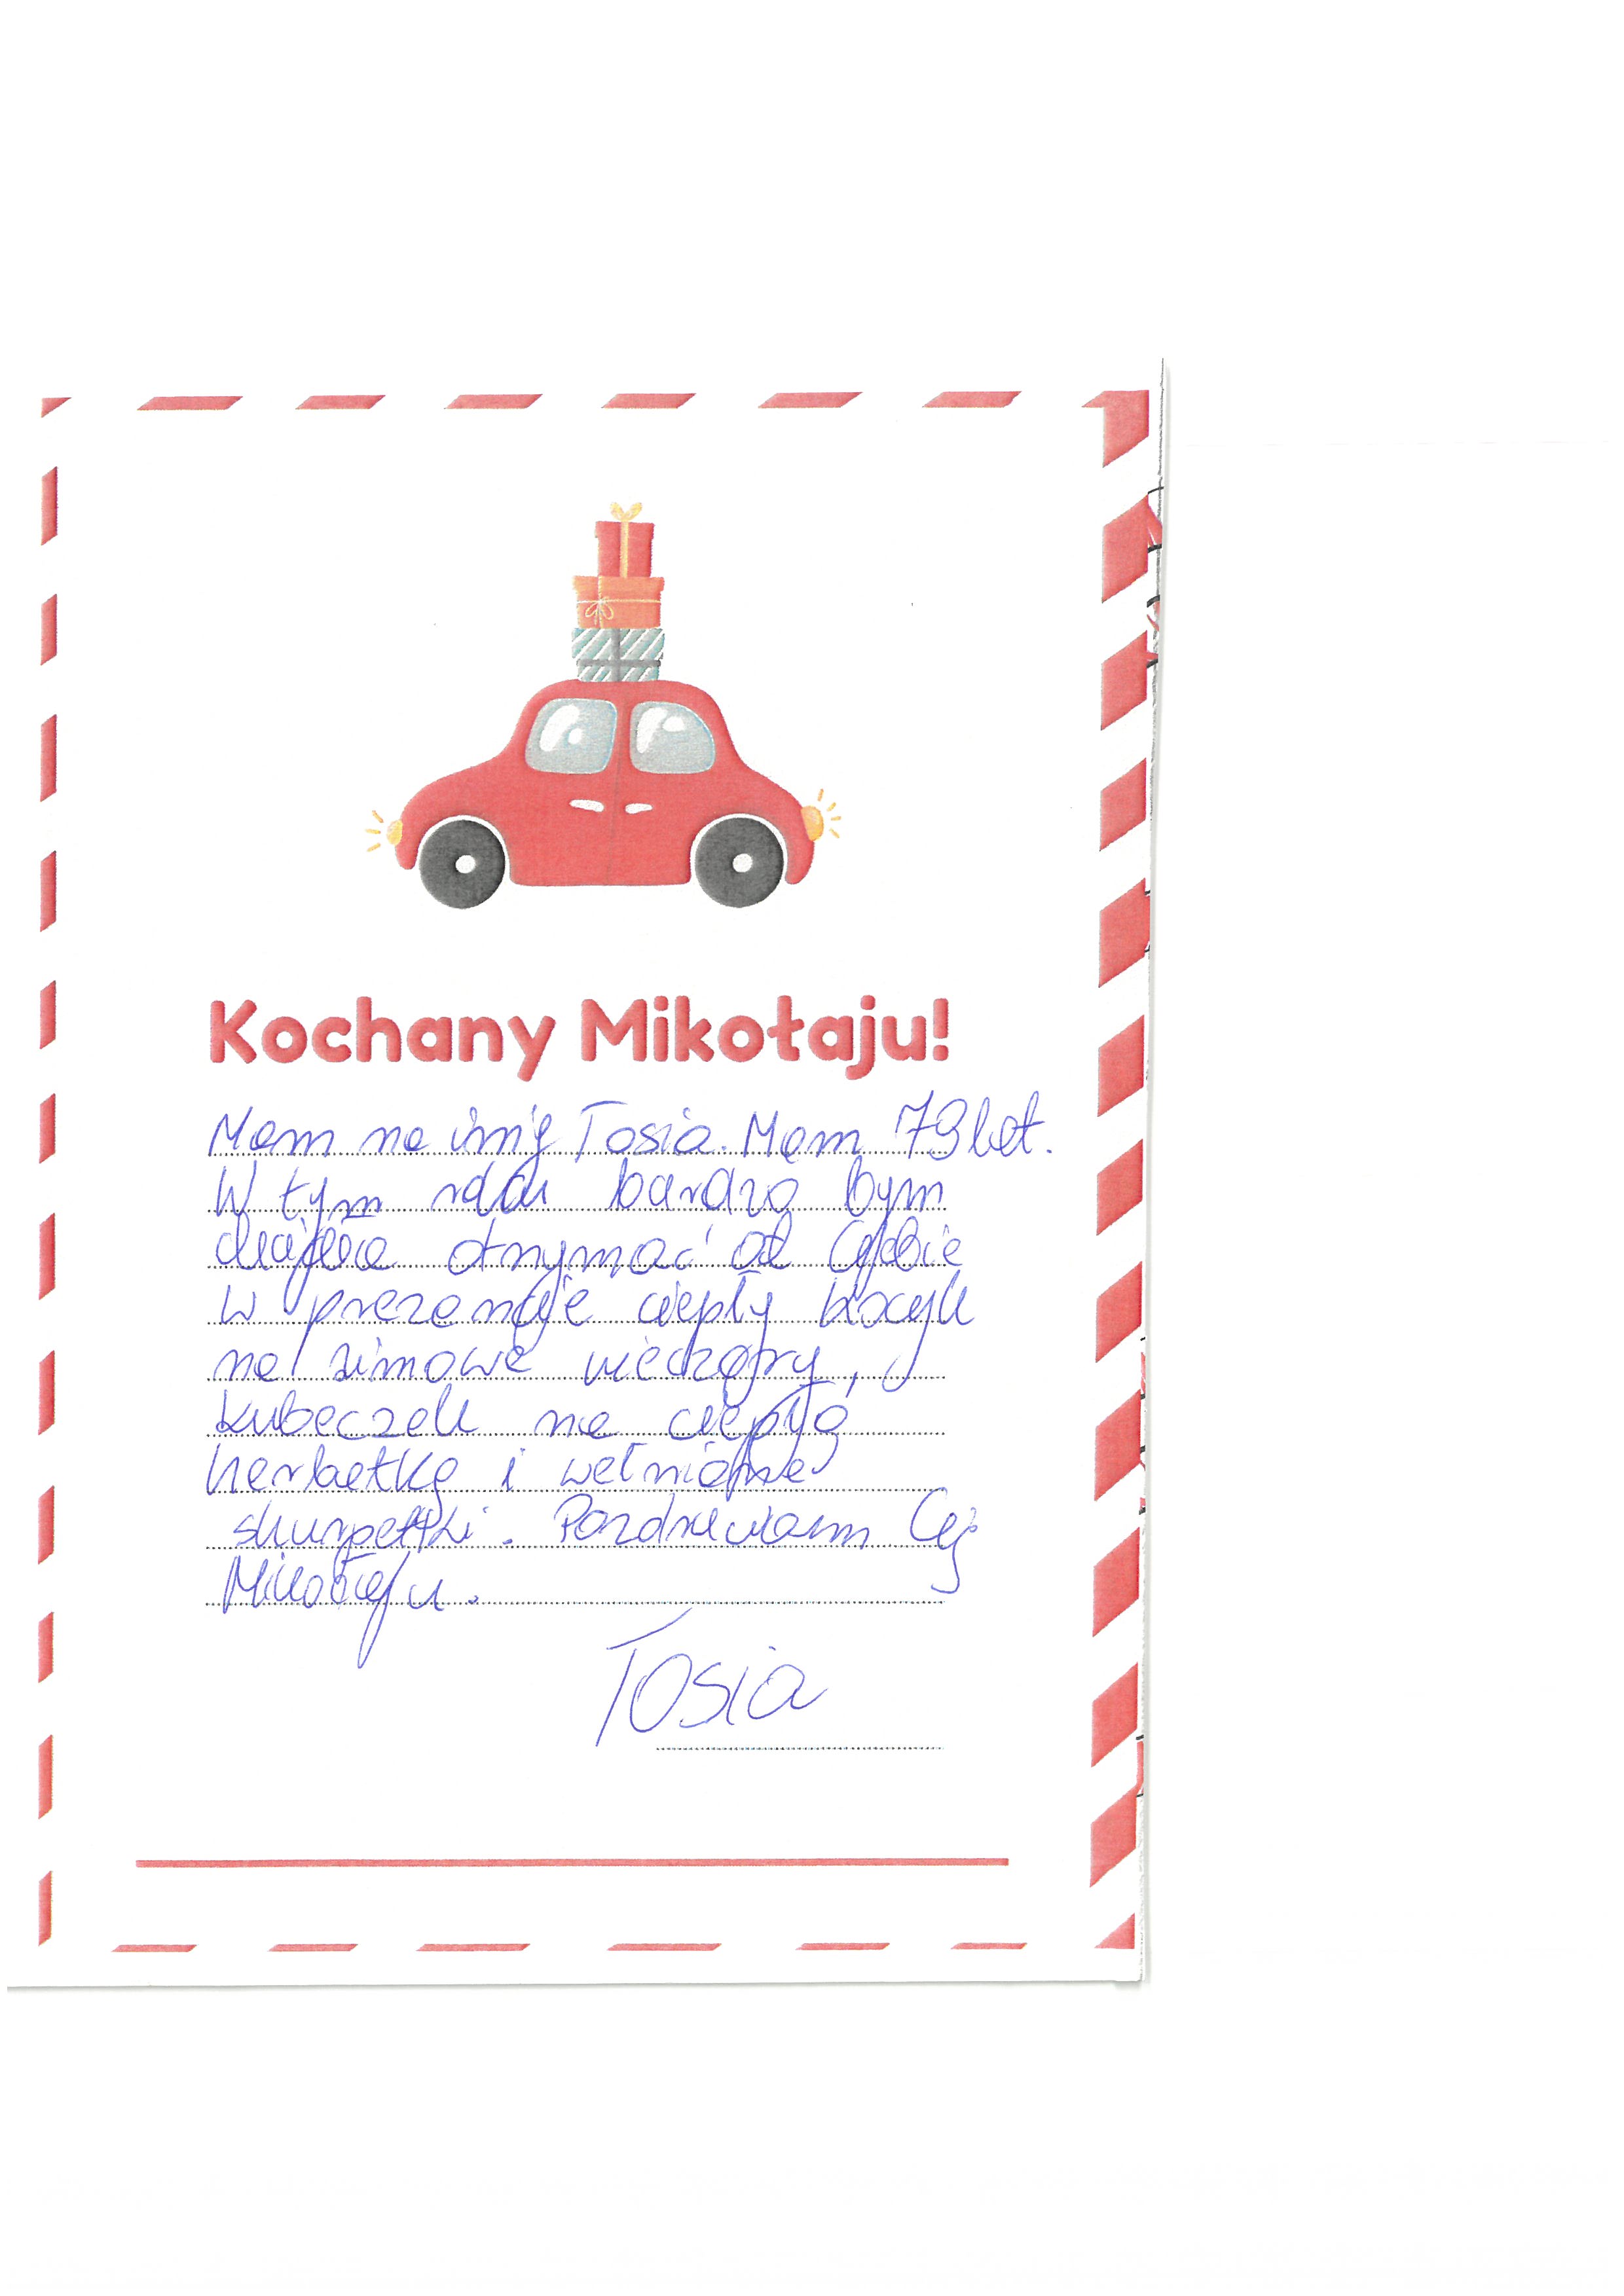 Kochany Mikołaju!
Mam na imię Tosia. Mam 79 lat.
W tym roku bardzo bym
chciała otrzymać od Ciebie
w prezencie ciepły kocyk
na zimowe wieczory,
kubeczek na ciepłą
herbatkę i wełniane
skarpetki. Pozdrawiam Cię
Mikołaju.
Tosia